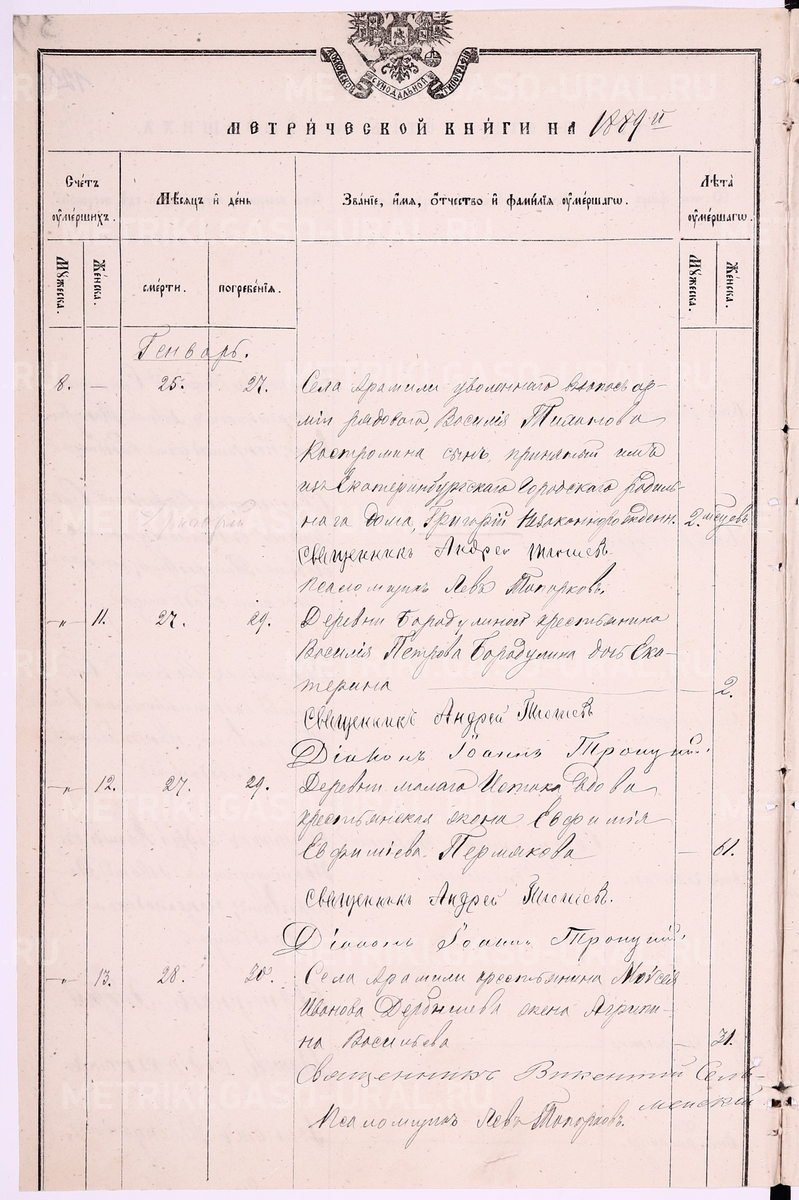 МОСКОВСКОЙ СѴНОДАЛЬНОЙ ТИПОГРАФІИ
МЕТРИ́ЧЕСКОЙ КНИ́ГИ НА 1889й
Сче́тъ ᲂу҆ме́ршихъ. Мѣ́сяцъ и҆ де́нь Зва́нїе, и҆́мя, ѻ҆́тчество и҆ фами́лїя ᲂу҆ме́ршагѡ. Лѣта̀ ᲂу҆ме́ршагѡ.
Мꙋ́жеска. Же́нска. сме́рти. погребе́нїѧ. Мꙋ́жеска. Же́нска.
Генварь.
8. — 25. 27. Села Арамили уволеннаго ар-
міи рядоваго, Василія
Костромина сынъ, принятый имъ
изъ Екатеринбургскаго Городскаго родиль-
наго дома, Григорій незаконнорожден. 2. мѣсяцовъ
Священникъ Андрей
Псаломщикъ Левъ Топорковъ.
-„- 11. 27. 29. Деревни Бородулиной крестьянина
Василія Петрова Бородулина дочь Ека-
терина — 2.
Священникъ Андрей
Діаконъ Іоаннъ Троицкій.
-„- 12. 27. 29. Деревни малаго Истока вдова
крестьянская жена Евфимія
Евфиміева Пермякова — 61.
Священникъ Андрей
Діаконъ Іоаннъ Троицкій.
-„- 13. 28. 30. Села Арамили крестьянина Моисея
Иванова жена Агрипи-
на Васильева — 31.
Священникъ Викентій Сель-
менскій
Псаломщикъ Левъ Топорковъ.